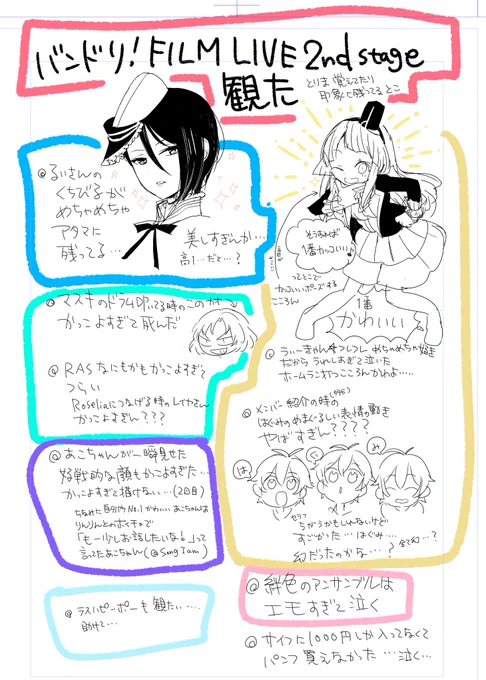 バンドリ！FILM LIVE 2nd stage
観た
とりま覚えてたり
印象に残ってるとこ
◎るいさんの
くちびるが
めちゃめちゃ
アタマに
残ってる…
美しすぎんか…
高1…だと…？
そうすれば
1番かっこいい♪
ってとこで
かっこいいポーズする
こころん
1番
かわいい
◎マスキのドラムDPってる時のこのカオ
かっこよすぎて死んだ
◎RASなにもかもかっこよすぎて
つらい
Roseliaにつなげる時のレイヤさん
かっこよすぎん???
◎うぃーきゃん☆フレフレめちゃめちゃ好き
だからうれしすぎて泣いた
ホームラン打つこころんかわよ…..
◎メンバー紹介の時の
はぐみのめまぐるしい表情の動き
やばすぎん????
は
ぐ
み
セリフ
ちがうかもしんないけど
すごかった…はぐみ…
幻だったのかな…？
◎あこちんが一瞬見せた
好戦的な顔もかっこよすぎた…
かっこよすぎて描けない…(2回目)
ちなみに自分的No.1かわいいあこちゃんは
りんりんとのボイチャで
「もー少しお話したいなぁ」って
言ってたあこちゃん(@Sing Jam)
◎ラスハピーポーも観たい….
助けて…
◎緋色のアンサンブルは
エモすぎて泣く
◎サイフに1000円しか入ってなくて
パンフ買えなかった…泣く…